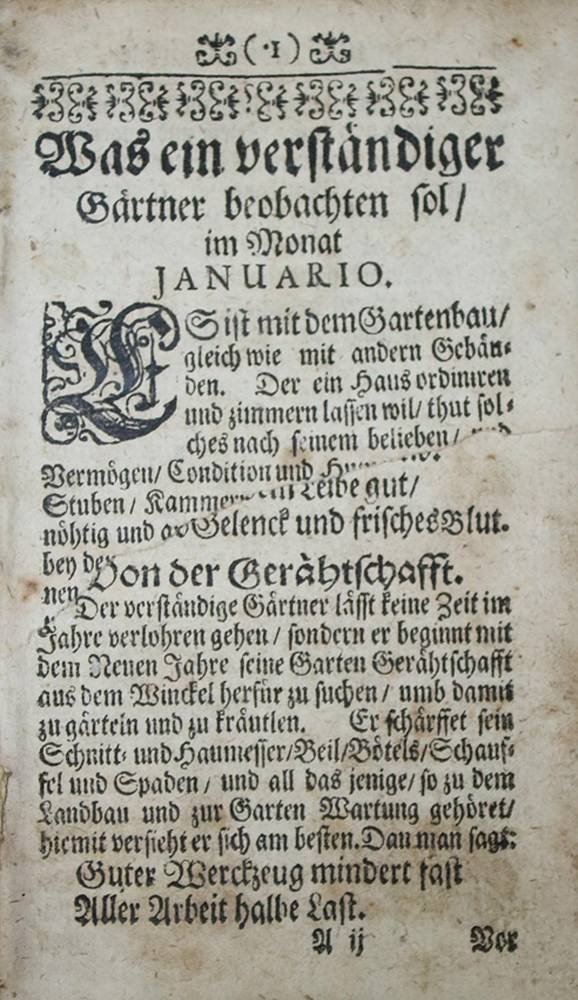 (·1)
Was ein verständiger
Gärtner beobachten sol/
im Monat
JANUARIO.
ES ist mit dem Gartenbau/
gleich wie mit andern Gebäu-
den. Der ein Haus ordiniren
und zimmern lassen wil/ thut sol-
ches nach seinem belieben/
Vermögen/ Condition und
Stuben/ Leibe gut/
nöhtig und Gelenck und frisches Blut.
bey
Von der Gerähtschafft.
nen
Der verständige Gärtner lässt keine Zeit im
Jahre verlohren gehen/ sondern er beginnt mit
dem Neuen Jahre seine Garten Gerähtschafft
aus dem Winckel herfür zu suchen/ umb damit
zu gärteln und zu kräutlen. Er schärffet sein
Schnitt- und Haumesser/Beil/Bötels/Schauf-
fel und Spaden/ und all das jenige/ so zu dem
Landbau und zur Garten Wartung gehöret/
hiemit versieht er sich am besten. Dan man sagt:
Guter Werckzeug mindert fast
Aller Arbeit halbe Last.
A ij
Vor